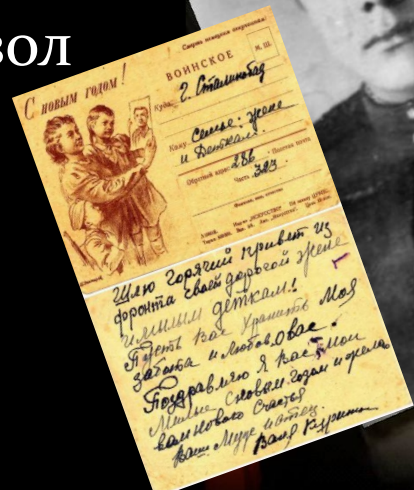 зол
Смерть немецким оккупантам!
С НОВЫМ ГОДОМ!
ВОИНСКОЕ
Куда г. Сталинабад
Кому Семье: жене
и Деткам.
Обратный адрес: 286 Полевая почта
Часть 323
Шлю горячий привет из
фронта своей дорогой жене
и милым деткам!
Пусть Вас хранить Моя
забота и Любов о Вас.
Поздравляю Я Вас мои
Милые с новым годом и желаю
вам нового счастья
Ваш Муж и отец
Ваня